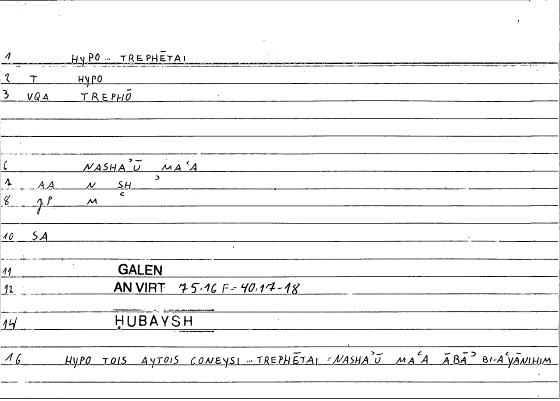 1 HYPO - TREPHĒTAI
2 T HYPO
3 VQA TREPHŌ
6 NASHAʾŪ MAʿA
7 AA N SH ʾ
8 gP M ʿ
10 SA
11 GALEN
12 AN VIRT 75.16 F - 40.17-18
14 ḤUBAYSH
16 HYPO TOIS AYTOIS CONEYSI - TREPHĒTAI = NASHAʾŪ MAʿA ĀBĀʾ BI-AʿYĀNIHIM